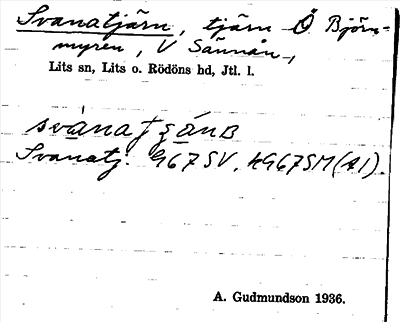 Svanatjärn, tjärn Ö Björn-
myren, V Sännån,
Lits sn, Lits o. Rödöns hd, Jtl. l.
Svanatj. 967SV, 4967SM(AI).
A. Gudmundson 1936.